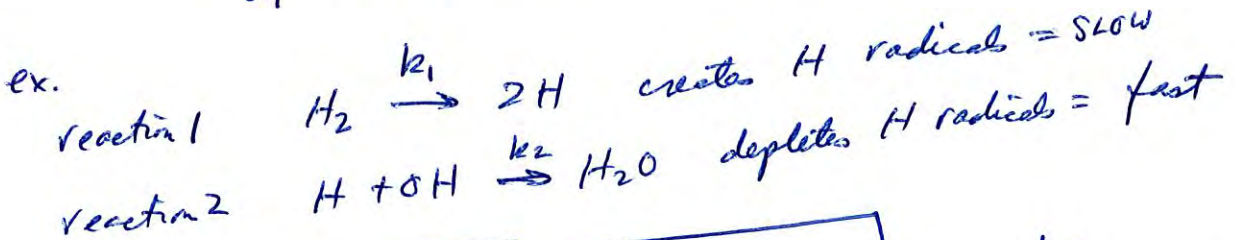 ex.
reaction 1 H₂ →k₁ 2H creates H radicals = SLOW
reaction 2 H + OH →k₂ H₂O depletes H radicals = fast